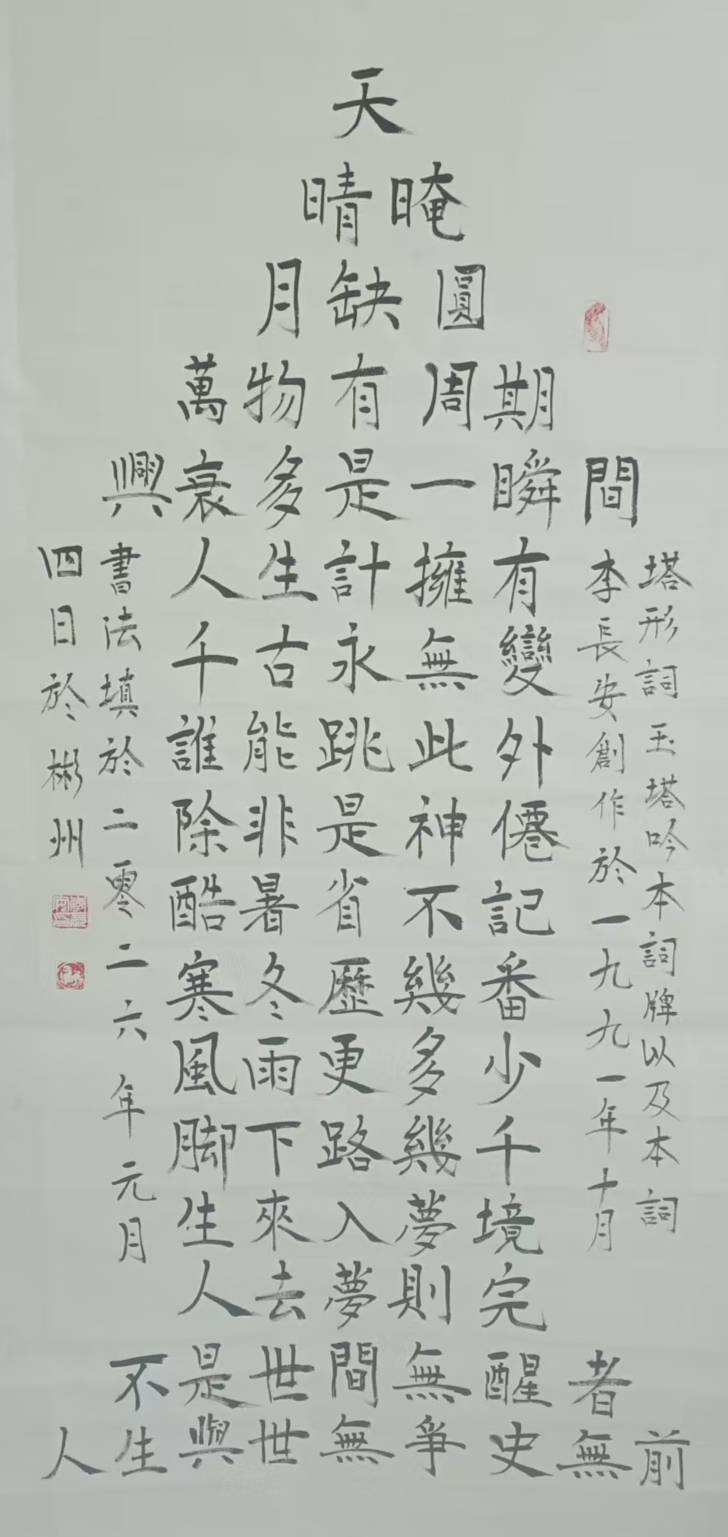 天
晴晻
月缺圓
萬物有周期
興衰多是一瞬間
人生計擁有
千古永無變
誰能跳此外
除非是神僊
酷暑省不記
寒冬歷幾番
風雨更多少
脚下路幾千
生來入夢境
人去夢則完
不是世間無醒者
人生與世無爭史無前
塔形詞玉塔吟本詞牌以及本詞
李長安創作於一九九一年十月
書法填於二零二六年元月
四日於彬州